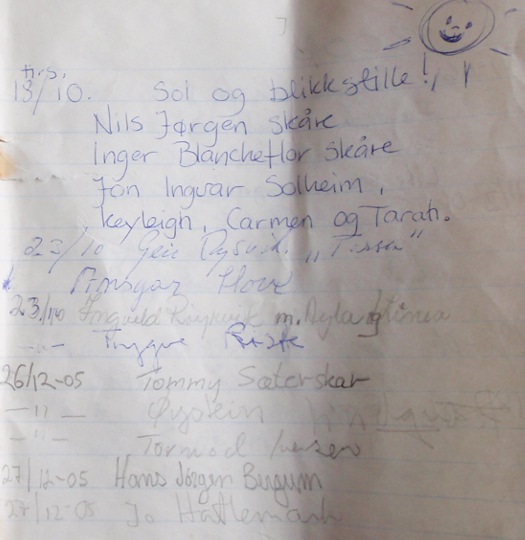 Trs.
18/10. Sol og blikkstille!
Nils Jørgen Skåre
Inger Blancheflor Skåre
Jon Ingvar Solheim,
Keyleigh, Carmen og Tarah.
22/10 Geir "Tissa"
Arnsgar Hove
23/10 Ingvild m. Ayla og
-"- Trygve
26/12-05 Tommy Sæterskar
-"- Øystein
-"- Tormod
27/12-05 Hans Jørgen Bergum
27/12-05 Jo Hatlemark